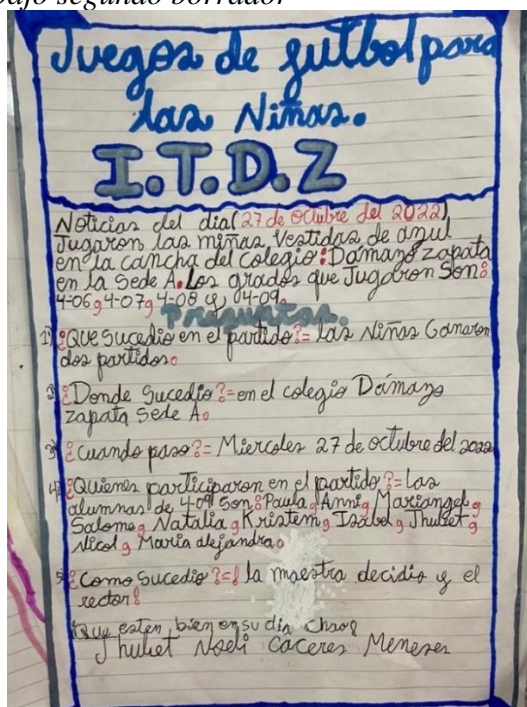 bajo segundo borrador
Juegos de futbol para
las Niñas.
I.T.D.Z
Noticias del dia (27 de octubre del 2022)
Jugaron las niñas Vestidas de azul
en la cancha del colegio: Dámazo zapata
en la Sede A. Los grados que Jugaron Son:
4-06, 4-07, 4-08 y 04-09.
Preguntas.
1) ¿Que sucedio en el partido?= las Niñas Ganaron
dos partidos.
2) ¿Donde Sucedio?= en el colegio Dámazo
zapata Sede A.
3) ¿cuando paso?= Miercoles 27 de octubre del 2022
4) ¿Quienes participaron en el partido?= Las
alumnas de 4-09 Son: Paula, Anni, Mariangel,
Salome, Natalia, Kristem, Isabel, Thuliet,
Nicol, Maria alejandra.
5) ¿Como Sucedio?=¡ la maestra decidio y el
rector!
¡Que esten bien en su dia chao!
Thuliet Noeli Caceres Meneses